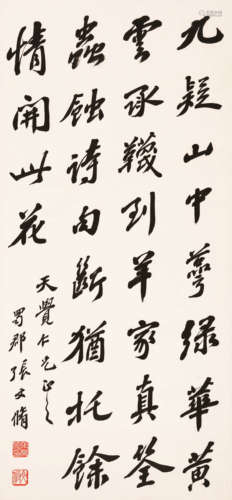 九疑山中萼綠華黃
雲承韈到羊家真筌
蟲蝕詩句斷猶托餘
情開此花
天覺仁兄正之
蜀郡張文脩